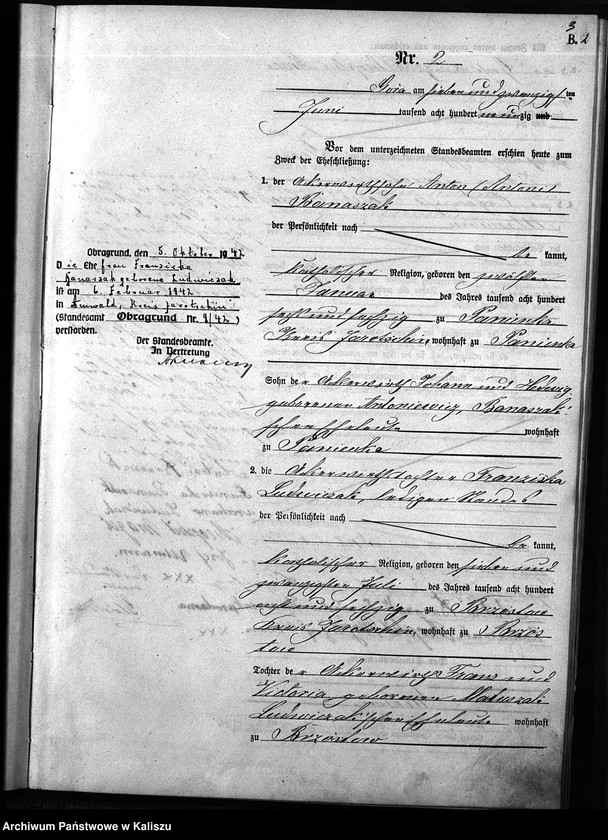 3
B. 2
Nr. 2
Gora am sieben und zwanzigsten
Juni tausend acht hundert neunzig und
Vor dem unterzeichneten Standesbeamten erschien heute zum
Zweck der Eheschließung:
1. der Ackerwirthssohn Anton (Antoni)
Banaszak
der Persönlichkeit nach
be kannt,
katholischer Religion, geboren den zwölften
Januar des Jahres tausend acht hundert
sechs und sechzig zu Panienka
Kreis Jarotschin, wohnhaft zu Panienka
Sohn der Ackerwirth Johann und Hedwig
geborenen Antoniewicz, Banaszak'
schen Eheleute wohnhaft
zu Panienka
2. die Ackerwirthstochter Franziska
Ludwiczak, ledigen Standes
der Persönlichkeit nach
be kannt,
katholischer Religion, geboren den sieben und
zwanzigsten Juli des Jahres tausend acht hundert
und sechzig zu Brzostow
Kreis Jarotschin, wohnhaft zu Brzos
tow
Tochter der Ackerwirth Franz und
Victoria geborenen Matuszak
Ludwiczak'schen Eheleute wohnhaft
zu Brzostow
Obragrund, den 5. Oktober 1942
Die Ehefrau Franziska
Banaszak geborene Ludwiczak
ist am 6. Februar 1942
in Annwalt, Kreis Jarotschin
(Standesamt Obragrund Nr. 9/42)
verstorben.
Der Standesbeamte.
In Vertretung
Archiwum Państwowe w Kaliszu